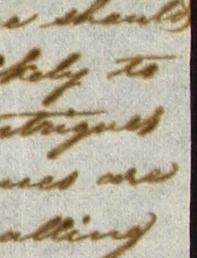 e should
ikely to
ntrigues
ues are
alling